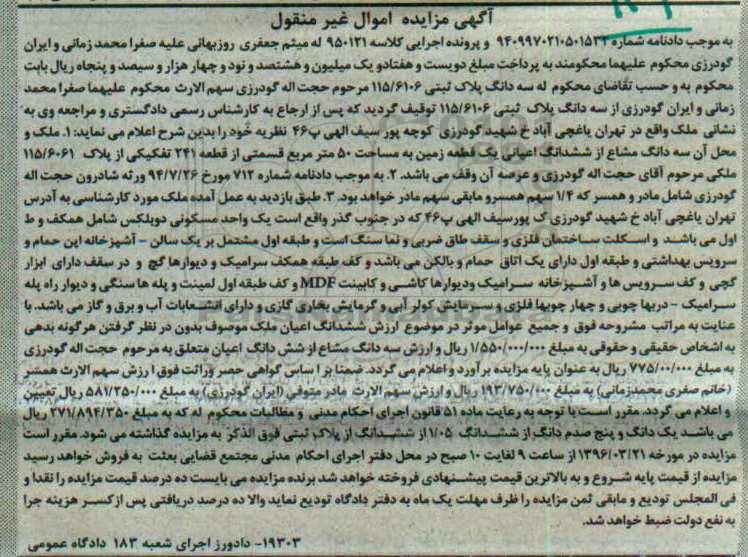 آگهی مزایده اموال غیر منقول
به موجب دادنامه شماره ۹۴۰۹۹۷۰۲۱۰۵۰۱۵۳۴ و پرونده اجرایی کلاسه ۹۵۰۱۲۱ له میثم جعفری روزبهانی علیه صغرا محمد زمانی و ایران
گودرزی محکوم علیهما محکومند به پرداخت مبلغ دویست و هفتادو یک میلیون و هشتصد و نود و چهار هزار و سیصد و پنجاه ریال بابت
محکوم به و حسب تقاضای محکوم له سه دانگ پلاک ثبتی ۱۱۵/۶۱۰۶ مرحوم حجت اله گودرزی سهم الارث محکوم علیهما صغرا محمد
زمانی و ایران گودرزی از سه دانگ پلاک ثبتی ۱۱۵/۶۱۰۶ توقیف گردید که پس از ارجاع به کارشناس رسمی دادگستری و مراجعه وی به
نشانی ملک واقع در تهران یاغچی آباد خ شهید گودرزی کوچه پور سیف الهی پ۴۶ نظریه خود را بدین شرح اعلام می نماید: ۱. ملک و
محل آن سه دانگ مشاع از ششدانگ اعیانی یک قطعه زمین به مساحت ۵۰ متر مربع قسمتی از قطعه ۲۴۱ تفکیکی از پلاک ۱۱۵/۶۰۶۱
ملکی مرحوم آقای حجت اله گودرزی و عرصه آن وقف می باشد. ۲. به موجب دادنامه شماره ۷۱۲ مورخ ۹۴/۷/۲۶ ورثه شادرون حجت اله
گودرزی شامل مادر و همسر که ۱/۴ سهم همسرو مابقی سهم مادر خواهد بود. ۳. طبق بازدید به عمل آمده ملک مورد کارشناسی به آدرس
تهران یاغچی آباد خ شهید گودرزی ک پورسیف الهی پ۴۶ که در جنوب گذر واقع است یک واحد مسکونی دوبلکس شامل همکف و ط
اول می باشد و اسکلت ساختمان فلزی و سقف طاق ضربی و نما سنگ است و طبقه اول مشتمل بر یک سالن - آشپزخانه این حمام و
سرویس بهداشتی و طبقه اول دارای یک اتاق حمام و بالکن می باشد و کف طبقه همکف سرامیک و دیوارها گچ و در سقف دارای ابزار
گچی و کف سرویس ها و آشپزخانه سرامیک ودیوارها کاشی و کابینت MDF و کف طبقه اول لمینت و پله ها سنگی و دیوار راه پله
سرامیک - دربها چوبی و چهار چوبها فلزی و سرمایش کولر آبی و گرمایش بخاری گازی و دارای انشعابات آب و برق و گاز می باشد. با
عنایت به مراتب مشروحه فوق و جمیع عوامل موثر در موضوع ارزش ششدانگ اعیان ملک موصوف بدون در نظر گرفتن هرگونه بدهی
به اشخاص حقیقی و حقوقی به مبلغ ۱/۵۵۰/۰۰۰/۰۰۰ ریال و ارزش سه دانگ مشاع از شش دانگ اعیان متعلق به مرحوم حجت اله گودرزی
به مبلغ ۷۷۵/۰۰/۰۰۰ ریال به عنوان پایه مزایده برآورد و اعلام می گردد. ضمنا بر اساس گواهی حصر وراثت فوق ارزش سهم الارث همسر
(خانم صغری محمدزمانی) به مبلغ ۱۹۳/۷۵۰/۰۰۰ ریال و ارزش سهم الارث مادر متوفی (ایران گودرزی) به مبلغ ۵۸۱/۲۵۰/۰۰۰ ریال تعیین
و اعلام می گردد. مقرر است با توجه به رعایت ماده ۵۱ قانون اجرای احکام مدنی و مطالبات محکوم له که به مبلغ ۲۷۱/۸۹۴/۳۵۰ ریال
می باشد یک دانگ و پنج صدم دانگ از ششدانگ ۱/۰۵ از ششدانگ از پلاک ثبتی فوق الذکر به مزایده گذاشته می شود. مقرر است
مزایده در مورخه ۱۳۹۶/۰۳/۲۱ از ساعت ۹ لغایت ۱۰ صبح در محل دفتر اجرای احکام مدنی مجتمع قضایی بعثت به فروش خواهد رسید
مزایده از قیمت پایه شروع و به بالاترین قیمت پیشنهادی فروخته خواهد شد برنده مزایده می بایست ده درصد قیمت مزایده را نقدا و
فی المجلس تودیع و مابقی ثمن مزایده را ظرف مهلت یک ماه به دفتر دادگاه تودیع نماید والا ده درصد دریافتی پس ازکسر هزینه جرا
به نفع دولت ضبط خواهد شد.
۱۹۳۰۳- دادورز اجرای شعبه ۱۸۳ دادگاه عمومی